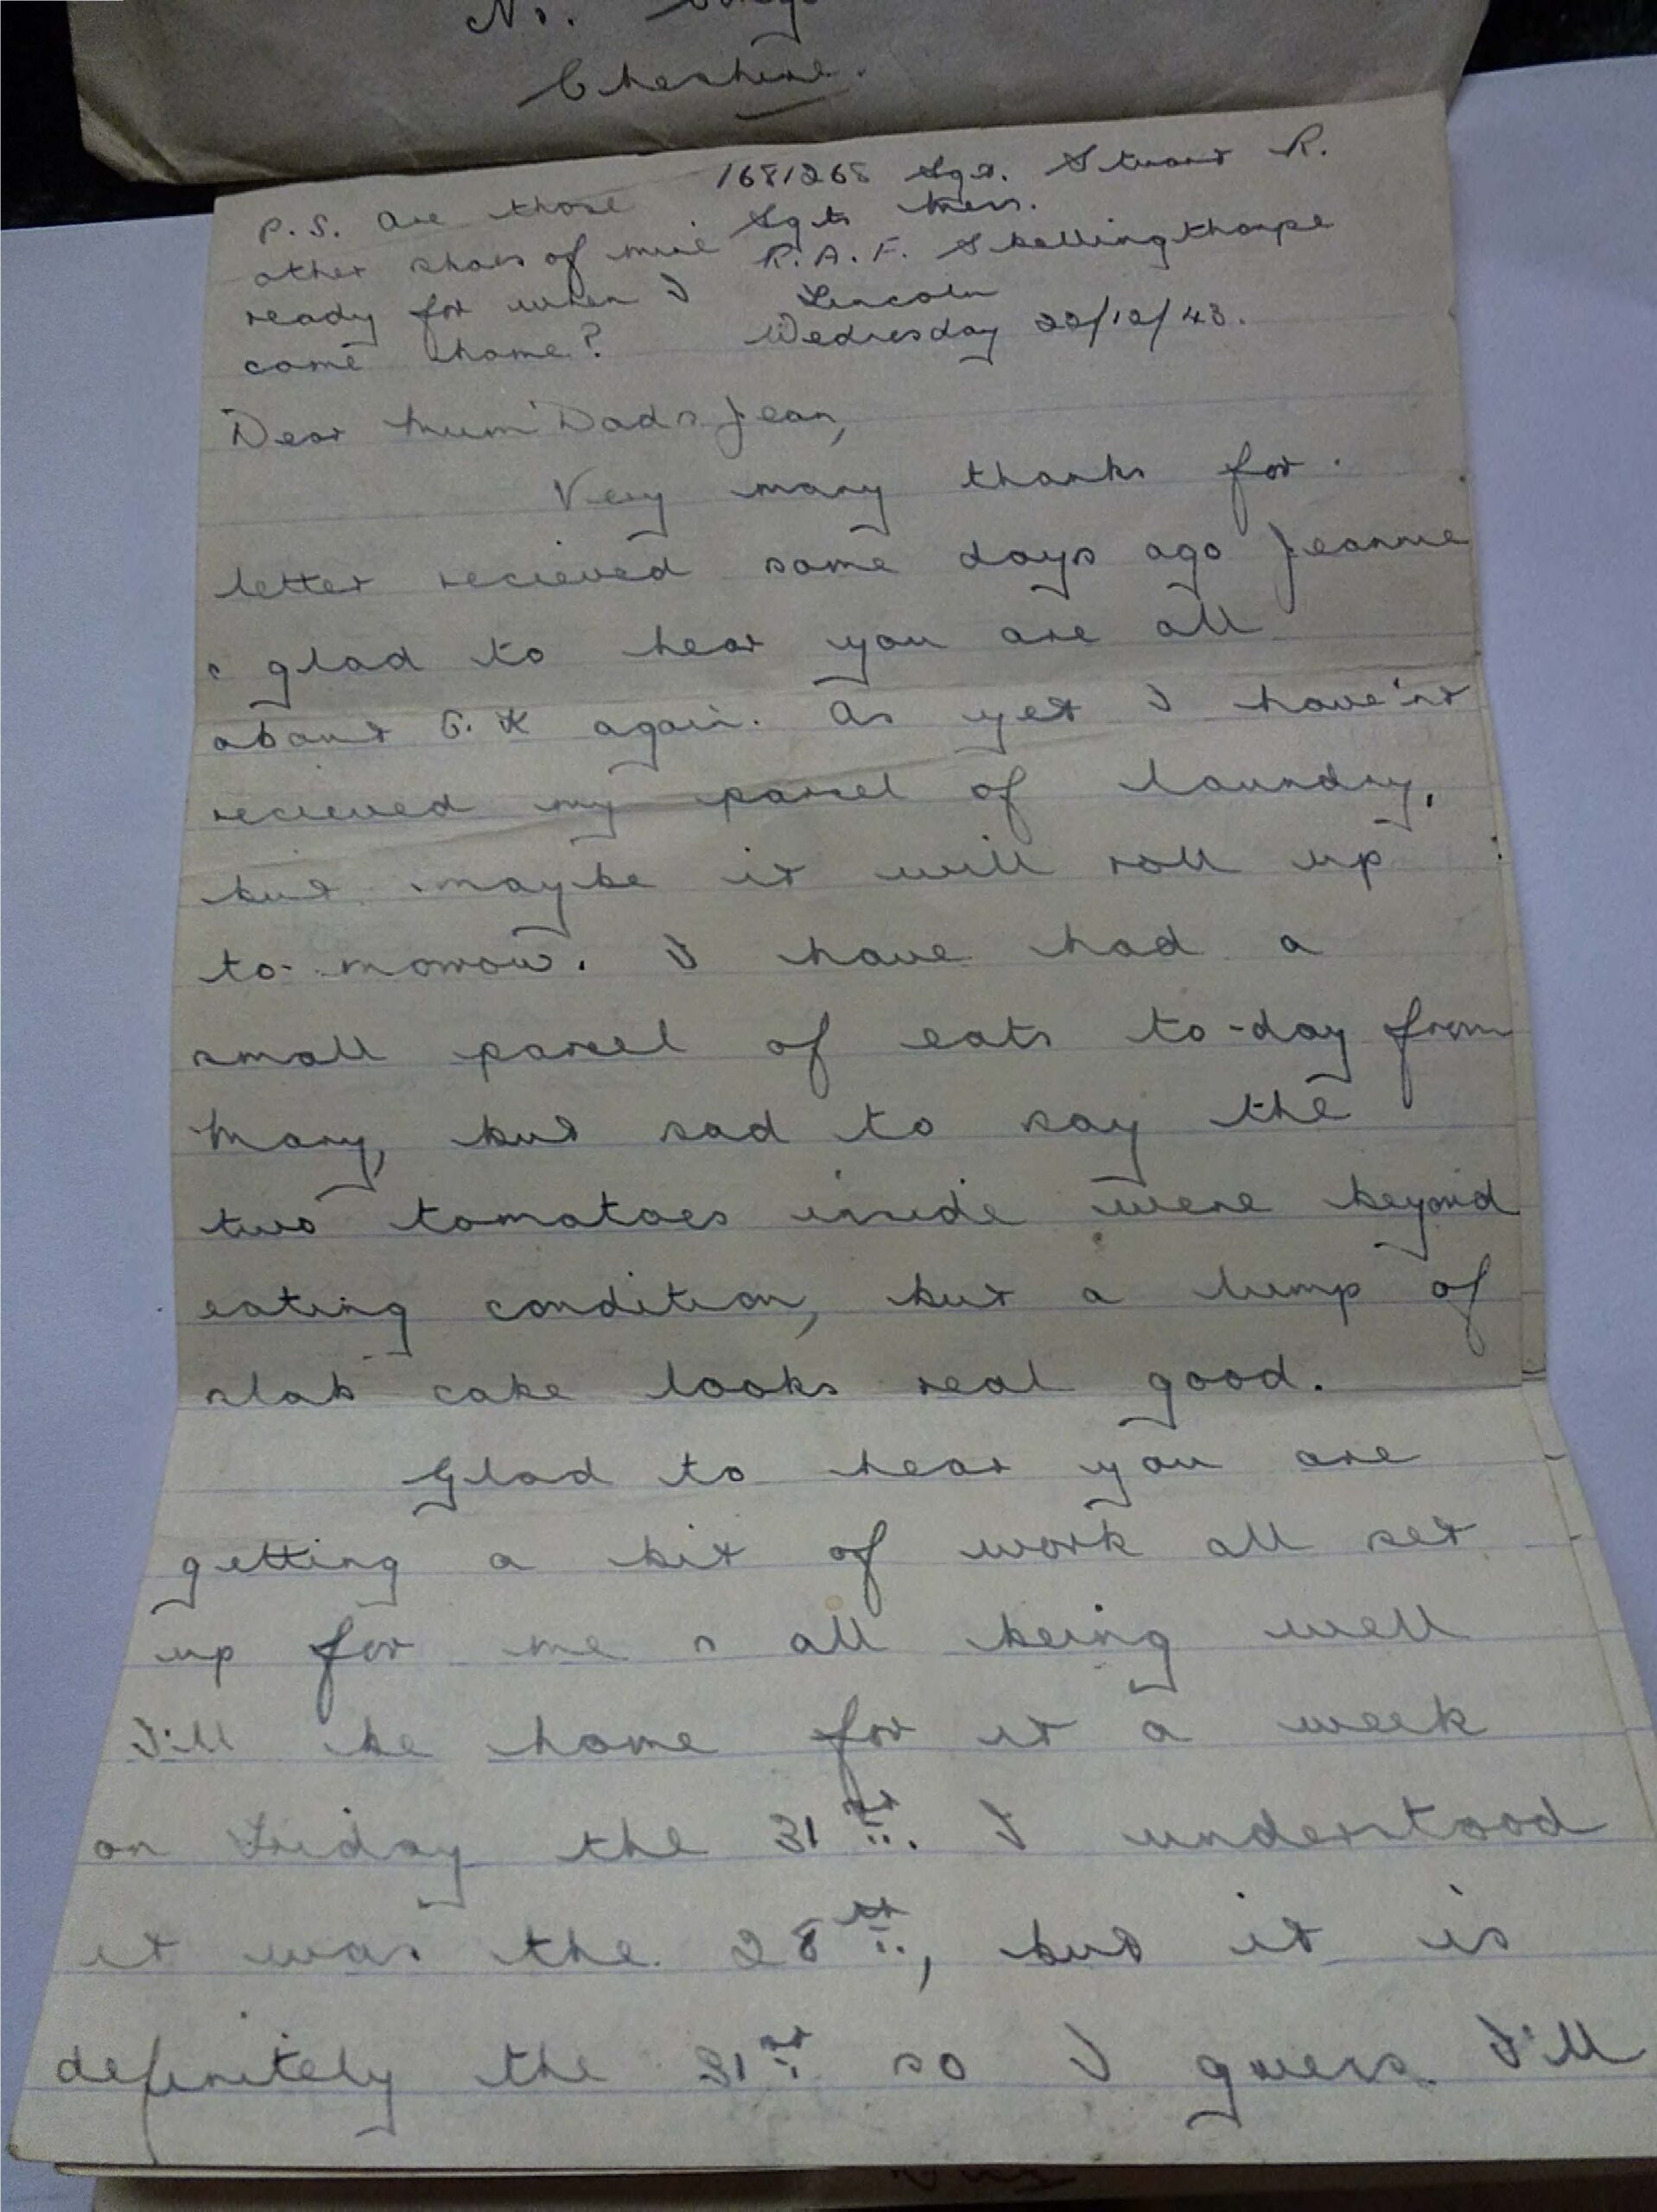 Cheshire.
1681268 Sgt. Stuart R.
Sgts Mess.
R.A.F. Skellingthorpe
Lincoln
Wednesday 22/12/43.
P.S. Are those
other shoes of mine
ready for when I
come home?
Dear Mum Dad & Jean,
Very many thanks for
letter recieved some days ago Jeanne
& glad to hear you are all
about O.K again. As yet I have'nt
recieved my parcel of laundry,
but maybe it will roll up
to-morrow. I have had a
small parcel of eats to-day from
Mary, but sad to say the
two tomatoes inside were beyond
eating condition, but a lump of
slab cake looks real good.
Glad to hear you are
getting a bit of work all set
up for me & all being well
I'll be home for it a week
on Friday the 31st. I understood
it was the 28th, but it is
definitely the 31st so I guess I'll